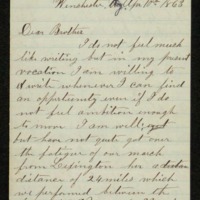 Winchester, Ky Apr 10th 1863
Dear Brother
I do not feel much
like writing but in my present
vocation I am willing to
write whenever I can find
an opportunity even if I do
not feel ambition enough
to move I am well
but have not quite got over
the fatigue of our march
from Lexington here a
distance of 24 miles which
we performed between the